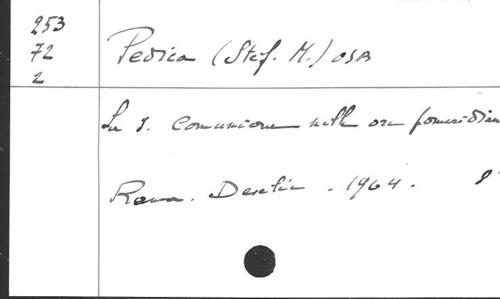 253
72
2
Pedica (Stef. M.) OSB
La S. Comunione nelle ore pomeridian
Roma. Desclée. 1964. 8°